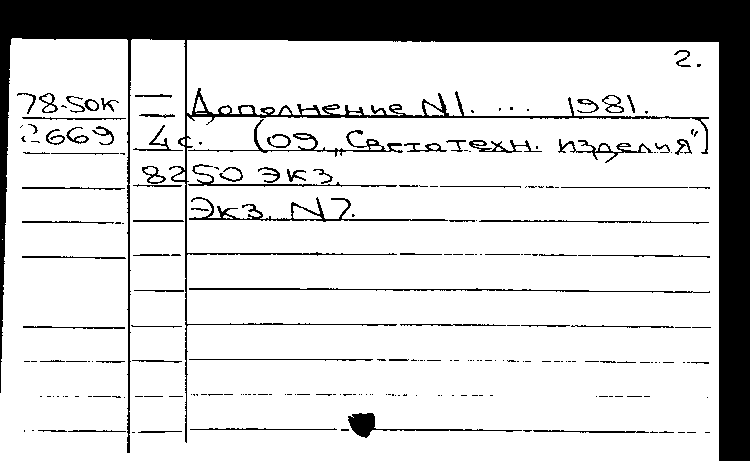 2.
78-50к — Дополнение N1. ... 1981.
2669 4с. (09 „Светотехн. изделия")
8250 экз.
Экз. N7.